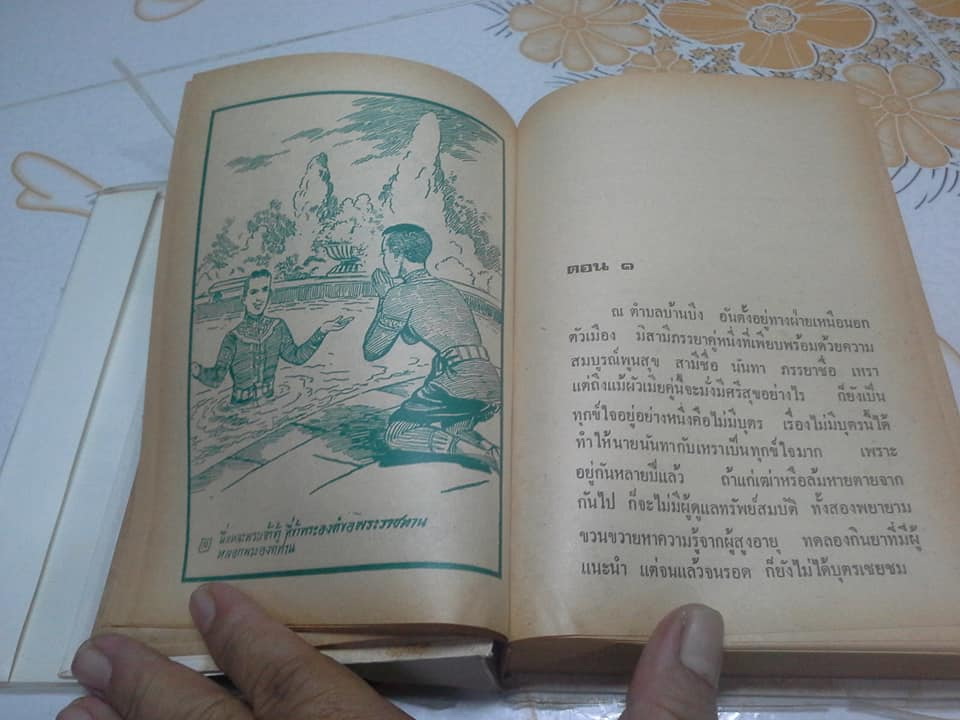 ตอน ๑
ณ ตำบลบ้านบึง อันตั้งอยู่ทางฝ่ายเหนือนอก
ตัวเมือง มีสามีภรรยาคู่หนึ่งที่เพียบพร้อมด้วยความ
สมบูรณ์พูนสุข สามีชื่อ นันทา ภรรยาชื่อ เหรา
แต่ถึงแม้ผัวเมียคู่นี้จะมั่งมีศรีสุขอย่างไร ก็ยังเป็น
ทุกข์ใจอยู่อย่างหนึ่งคือไม่มีบุตร เรื่องไม่มีบุตรนี้ได้
ทำให้นายนันทากับเหราเป็นทุกข์ใจมาก เพราะ
อยู่กันหลายปีแล้ว ถ้าแก่เฒ่าหรือล้มหายตายจาก
กันไป ก็จะไม่มีผู้ดูแลทรัพย์สมบัติ ทั้งสองพยายาม
ขวนขวายหาความรู้จากผู้สูงอายุ ทดลองกินยาที่มีผู้
แนะนำ แต่จนแล้วจนรอด ก็ยังไม่ได้บุตรเชยชม